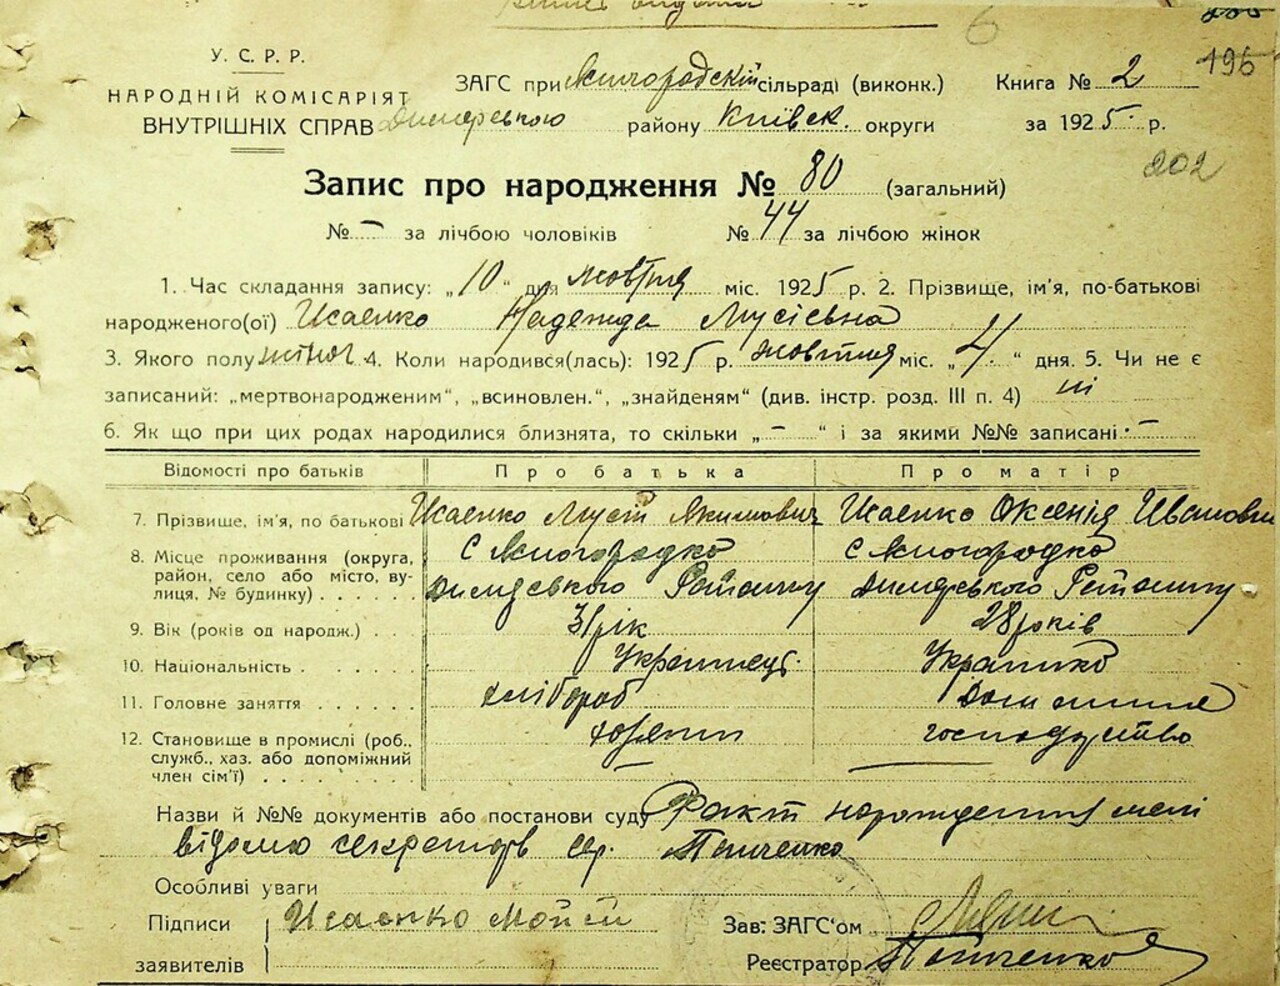 6
У. С. Р. Р.
НАРОДНІЙ КОМІСАРІЯТ
ВНУТРІШНІХ СПРАВ
ЗАГС при Ясногородскій сільраді (виконк.)
Димерського району Київск. округи
Книга № 2
за 1925 р.
196
202
Запис про народження № 80 (загальний)
№ – за лічбою чоловіків № 44 за лічбою жінок
1. Час складання запису: „10“ дня жовтня міс. 1925 р. 2. Прізвище, ім'я, по-батькові
народженого(ої) Исаенко Надежда Мусієвна
3. Якого полу жіноч 4. Коли народився(лась): 1925 р. жовтня міс. „4“ дня. 5. Чи не є
записаний: „мертвонародженим“, „всиновлен.“, „знайденям“ (див. інстр. розд. III п. 4) ні
6. Як що при цих родах народилися близнята, то скільки „–“ і за якими №№ записані –
Відомості про батьків Про батька Про матір
7. Прізвище, ім'я, по батькові Исаенко Мусій Якимович Исаенко Оксенія Ивановн
8. Місце проживання (округа, район, село або місто, вулиця, № будинку) с Ясногородка с Ясногородка
Димерського Району Димерського Району
9. Вік (років од народж.) 31 рік 28 років
10. Національність Українець Українка
11. Головне заняття хлібороб Домашнє
12. Становище в промислі (роб., служб., хаз. або допоміжний член сім'ї) хозяин господарство
Назви й №№ документів або постанови суду Факт народження мені
відомо секретарь с.р. Панченко
Особливі уваги
Підписи заявителів Исаенко Мойсй
Зав: ЗАГС'ом
Реєстратор Панченко